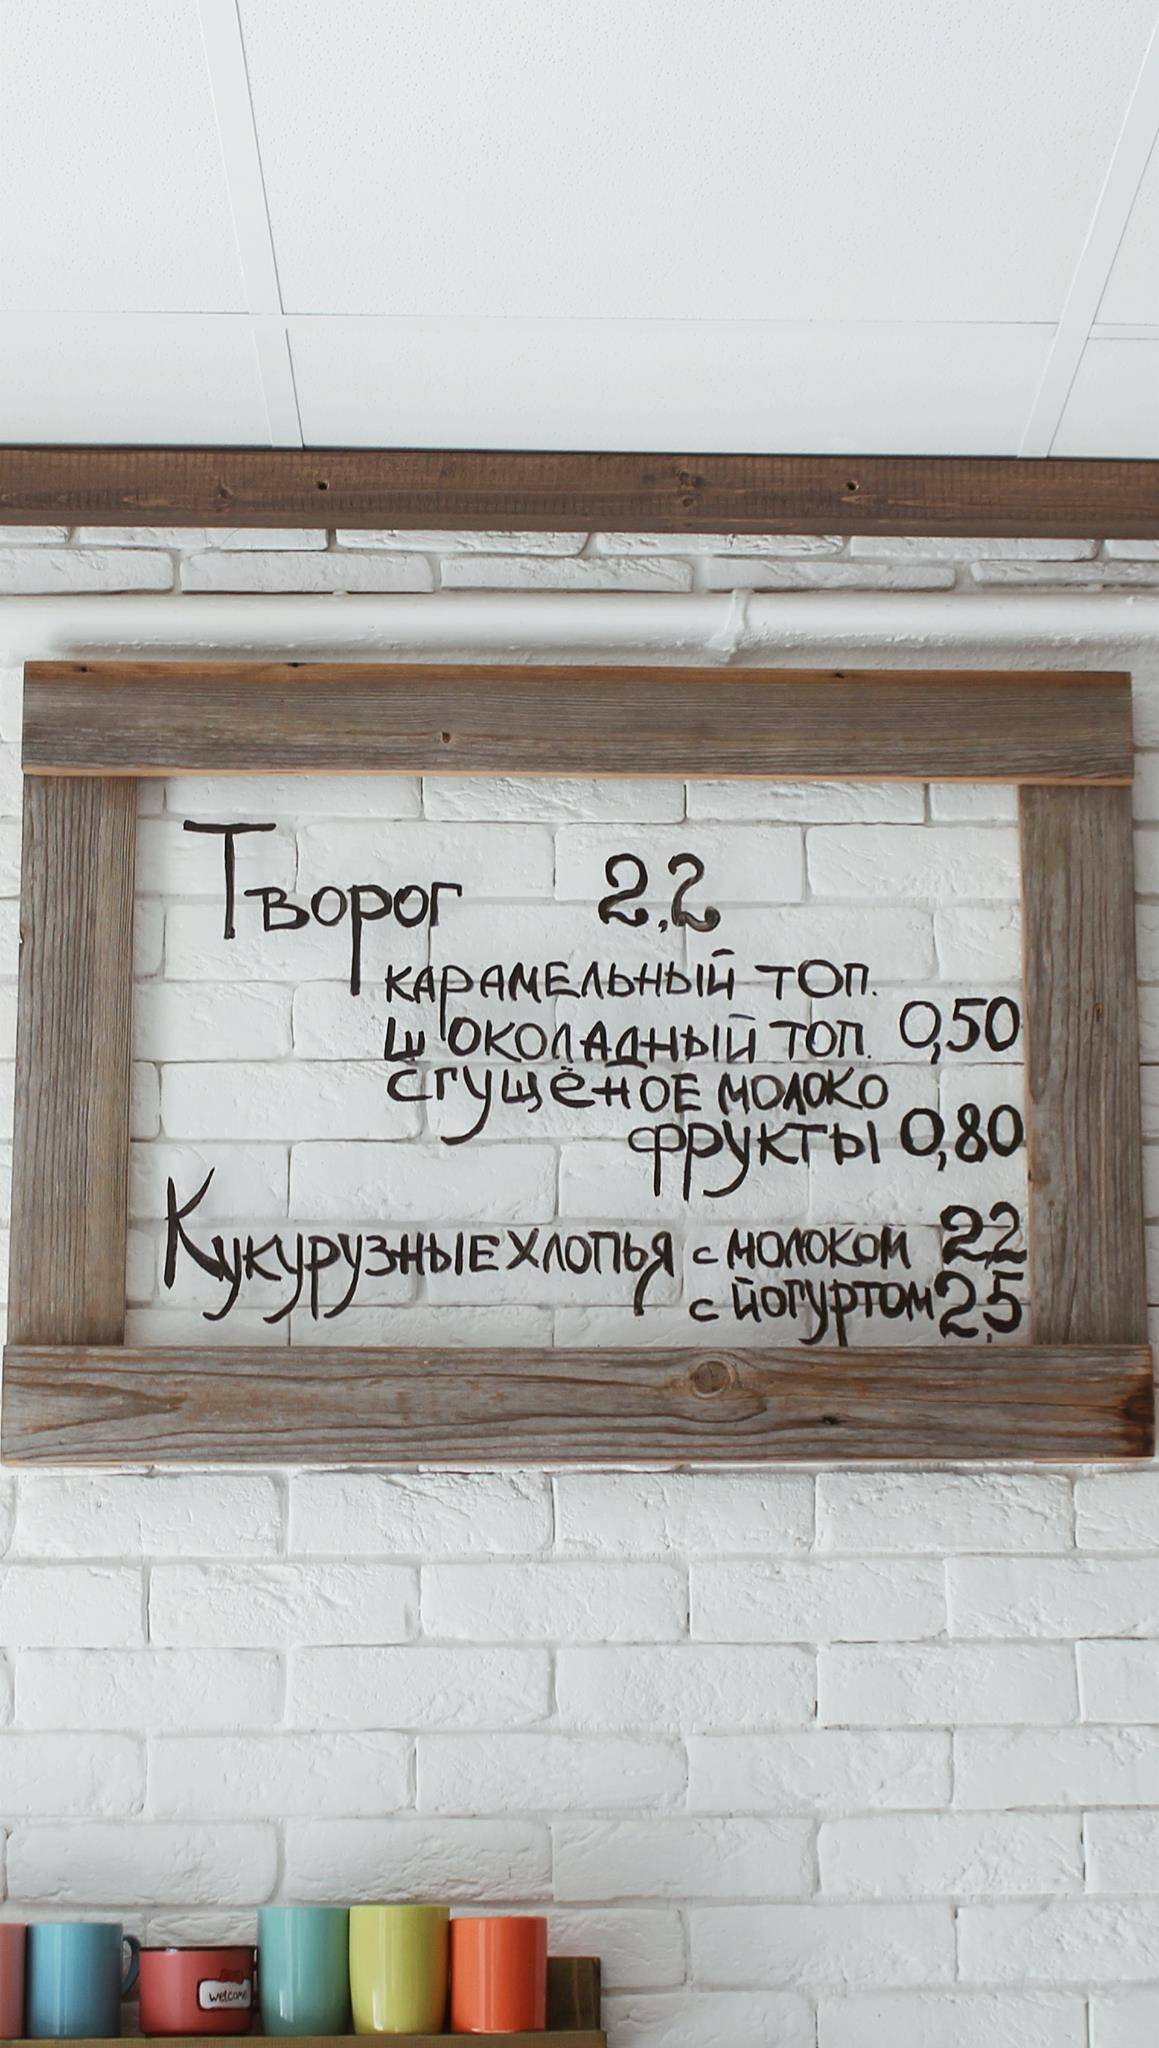 Творог 2,2
карамельный топ.
шоколадный топ. 0,50
сгущёное молоко
фрукты 0,80
Кукурузные хлопья с молоком 2,2
с йогуртом 2,5
welcome